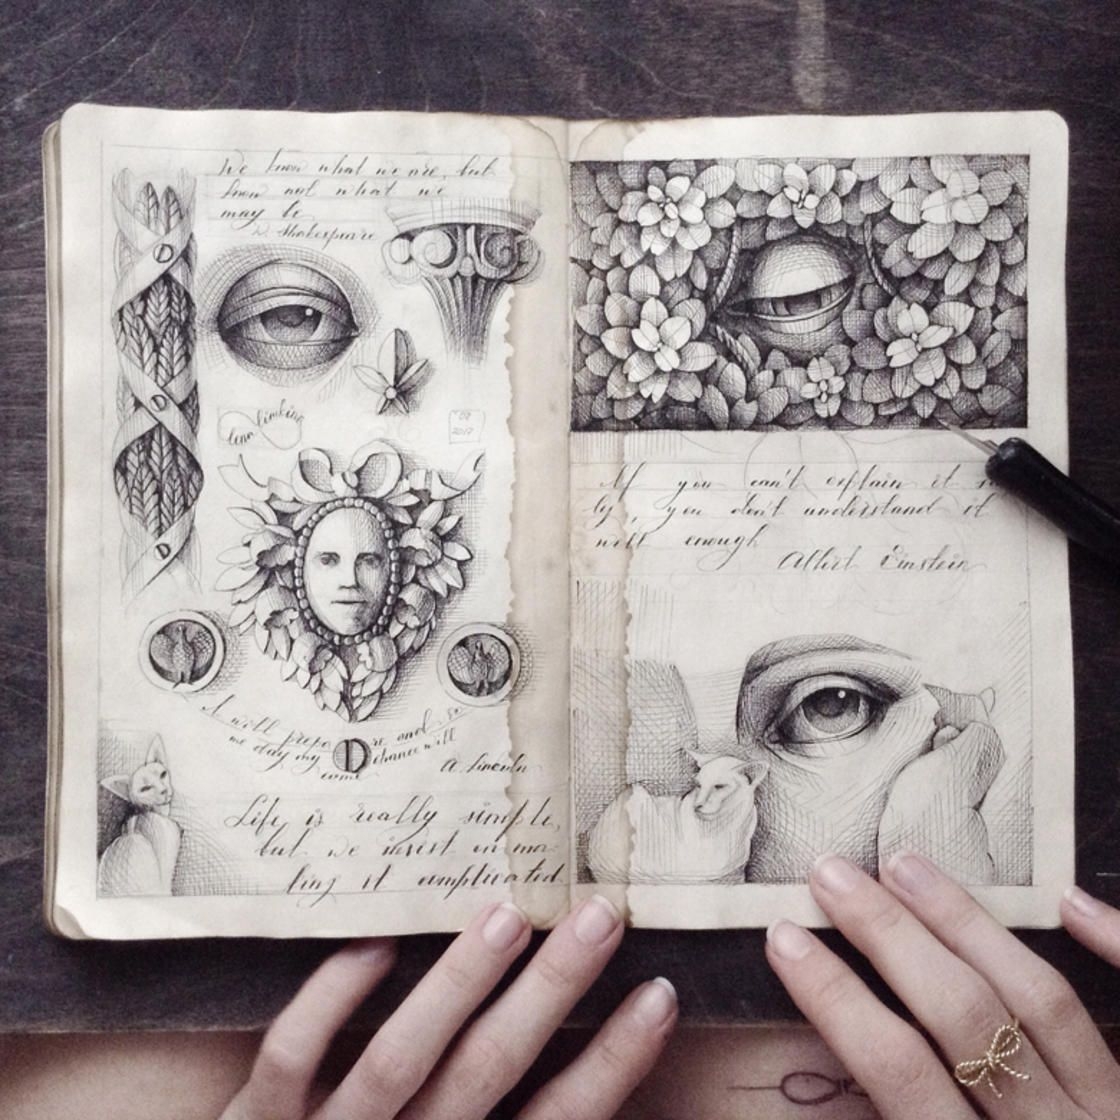 We know what we are, but
know not what we
may be
W. Shakespeare
lena limkina
02
2017
I will prepare and so
me day my chance will
come
A. Lincoln
Life is really simple,
but we insist on ma
king it complicated
If you can't explain it
ly, you don't understand it
well enough
Albert Einstein